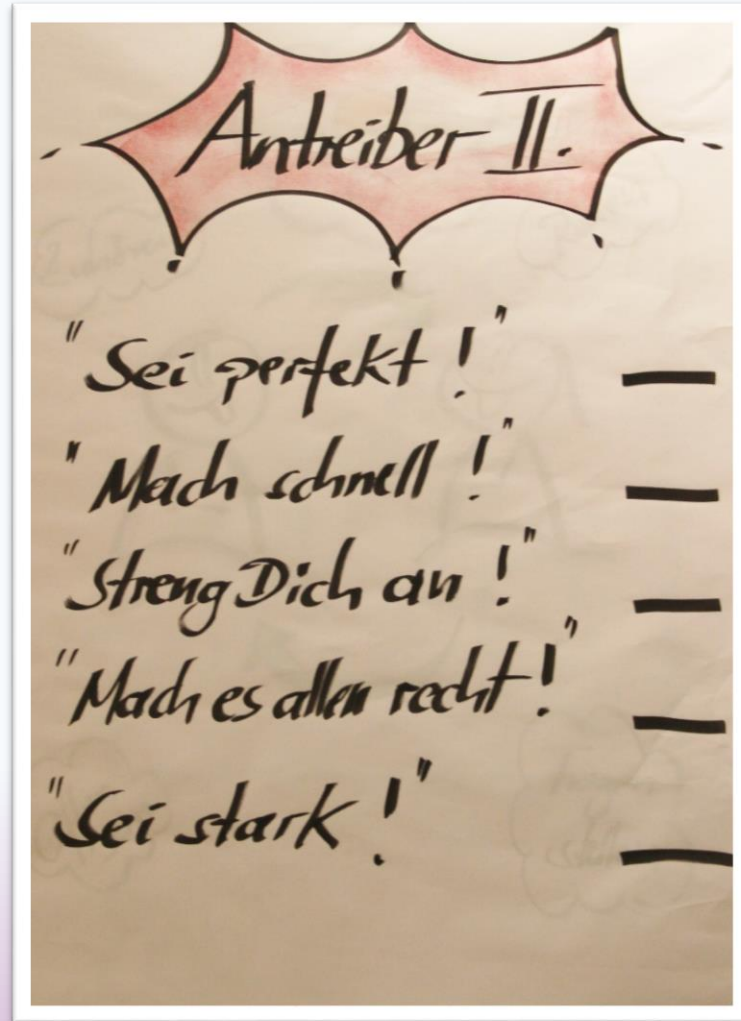 Antreiber II.
"Sei perfekt!"
"Mach schnell!"
"Streng Dich an!"
"Mach es allen recht!"
"Sei stark!"